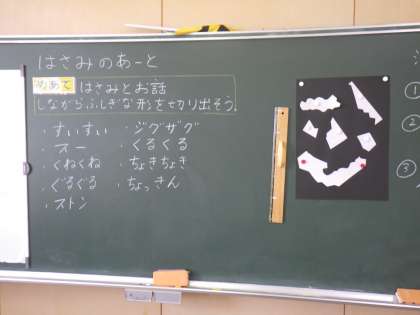 はさみのあーと
めあて はさみとお話
しながらふしぎな形を切り出そう。
・すいすい ・ジグザグ
・スー ・くるくる
・くねくね ・ちょきちょき
・ぐるぐる ・ちょっきん
・ストン
①
②
③